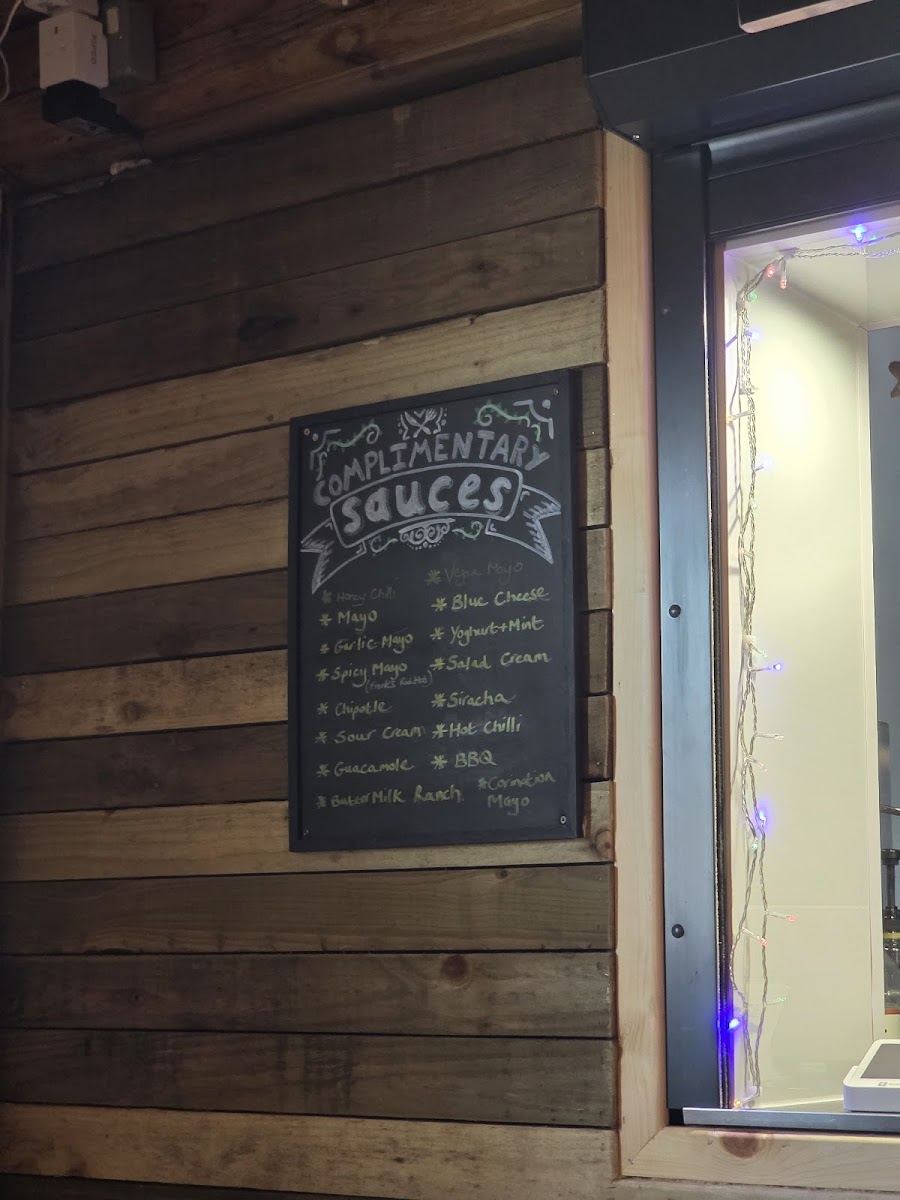 COMPLIMENTARY
sauces
* Honey Chilli
* Mayo
* Garlic Mayo
* Spicy Mayo
(Franks Red Hot)
* Chipotle
* Sour Cream
* Guacamole
* Butter Milk Ranch
* Vegan Mayo
* Blue Cheese
* Yoghurt + Mint
* Salad Cream
* Siracha
* Hot Chilli
* BBQ
* Corination
Mayo